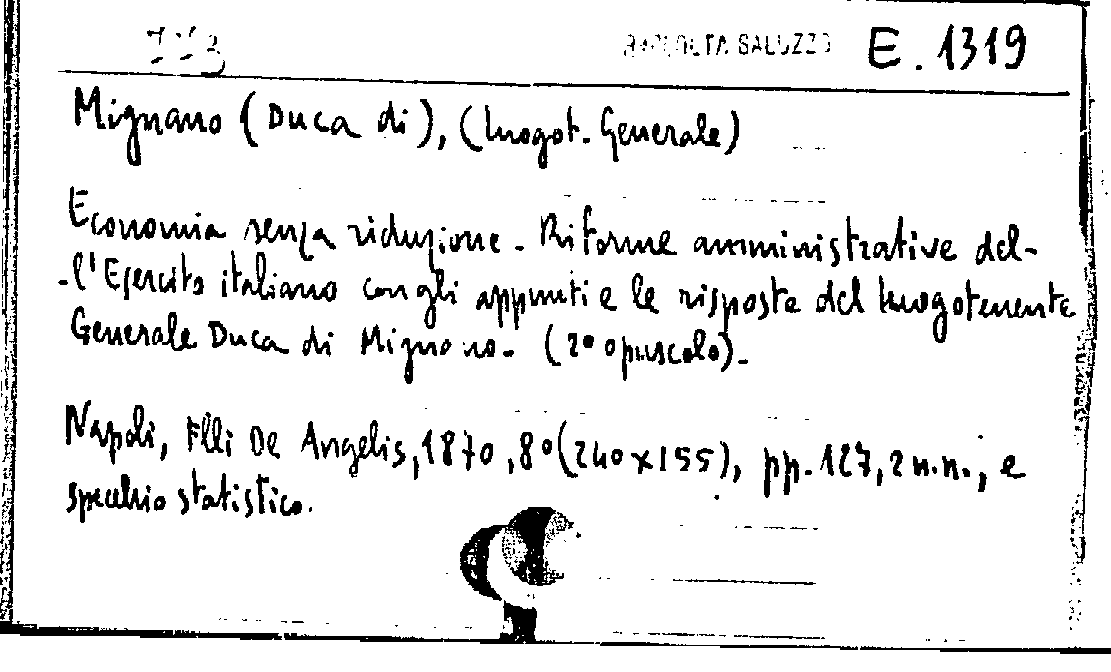 RACCOLTA SALUZZO E. 1319
Mignano (Duca di), (Luogot. Generale)
Economia senza riduzione - Riforme amministrative del-
-l'Esercito italiano con gli appunti e le risposte del Luogotenente
Generale Duca di Mignano. (2º opuscolo).
Napoli, F.lli De Angelis, 1870, 8º (240x155), pp. 127, 2 n.n., e
specchio statistico.